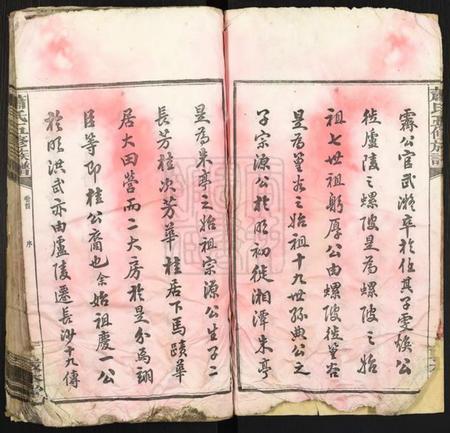 霧公官武溯卒於位其子雯煥公
徙廬陵之螺陂是為螺陂之始
祖七世祖躬厚公由螺陂徙篁谷
是為篁谷之始祖十九世孫典公之
子宗源公於明初徙湘潭朱亭
是為朱亭之始祖宗源公生子二
長芳桂次芳華桂居下馬蹟華
居大田營而二大房於是分焉翊
臣等即桂公裔也余始祖慶一公
於明洪武亦由廬陵遷長沙十九傳
蕭氏五修族譜
卷首
序
蕭氏五修族譜